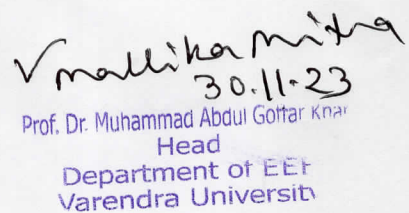 Mallika Mitra
30.11.23
Prof. Dr. Muhammad Abdul Gottar Khan
Head
Department of EEE
Varendra University